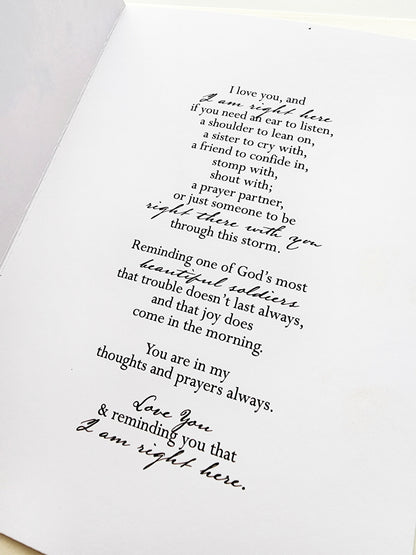 I love you, and
I am right here
if you need an ear to listen,
a shoulder to lean on,
a sister to cry with,
a friend to confide in,
stomp with,
shout with;
a prayer partner,
or just someone to be
right there with you
through this storm.
Reminding one of God's most
beautiful soldiers
that trouble doesn't last always,
and that joy does
come in the morning.
You are in my
thoughts and prayers always.
Love You
& reminding you that
I am right here.